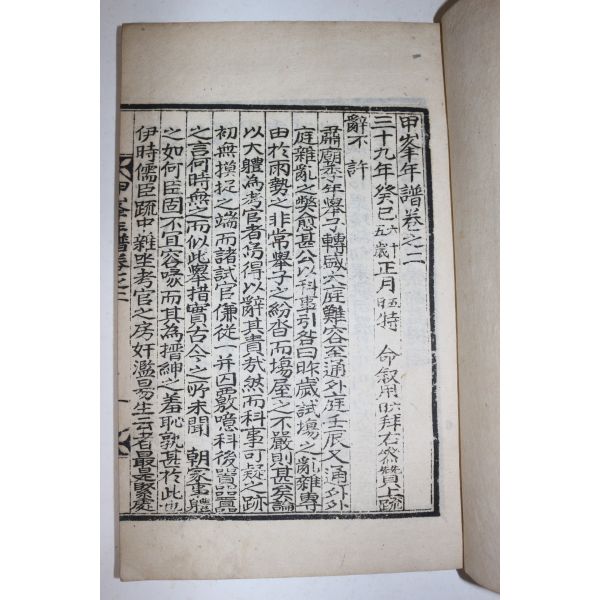 甲峯年譜卷之二
三十九年癸巳六十五歲正月 特 命叙用 拜右參贊上疏
辭不許
肅廟季年擧子轉盛大庭難容至通外庭壬辰又通外外
庭雜亂之弊愈甚公以科事引咎曰昨歲試場之亂雜專
由於雨勢之非常擧子之紛沓而場屋之不嚴則甚矣論
以大體爲考官者焉得以辭其責哉然而科事可疑之跡
初無摸捉之端而諸試官傔從一并囚覈噴科後囂囂
之言何時無之而似此擧措實古今之所未聞 朝家事體
之如何臣固不宜容喙而其爲搢紳之羞恥孰甚於此也
伊時儒臣疏中雜坐考官之房奸濫易生云者最是緊處
甲峯年譜卷之二 一